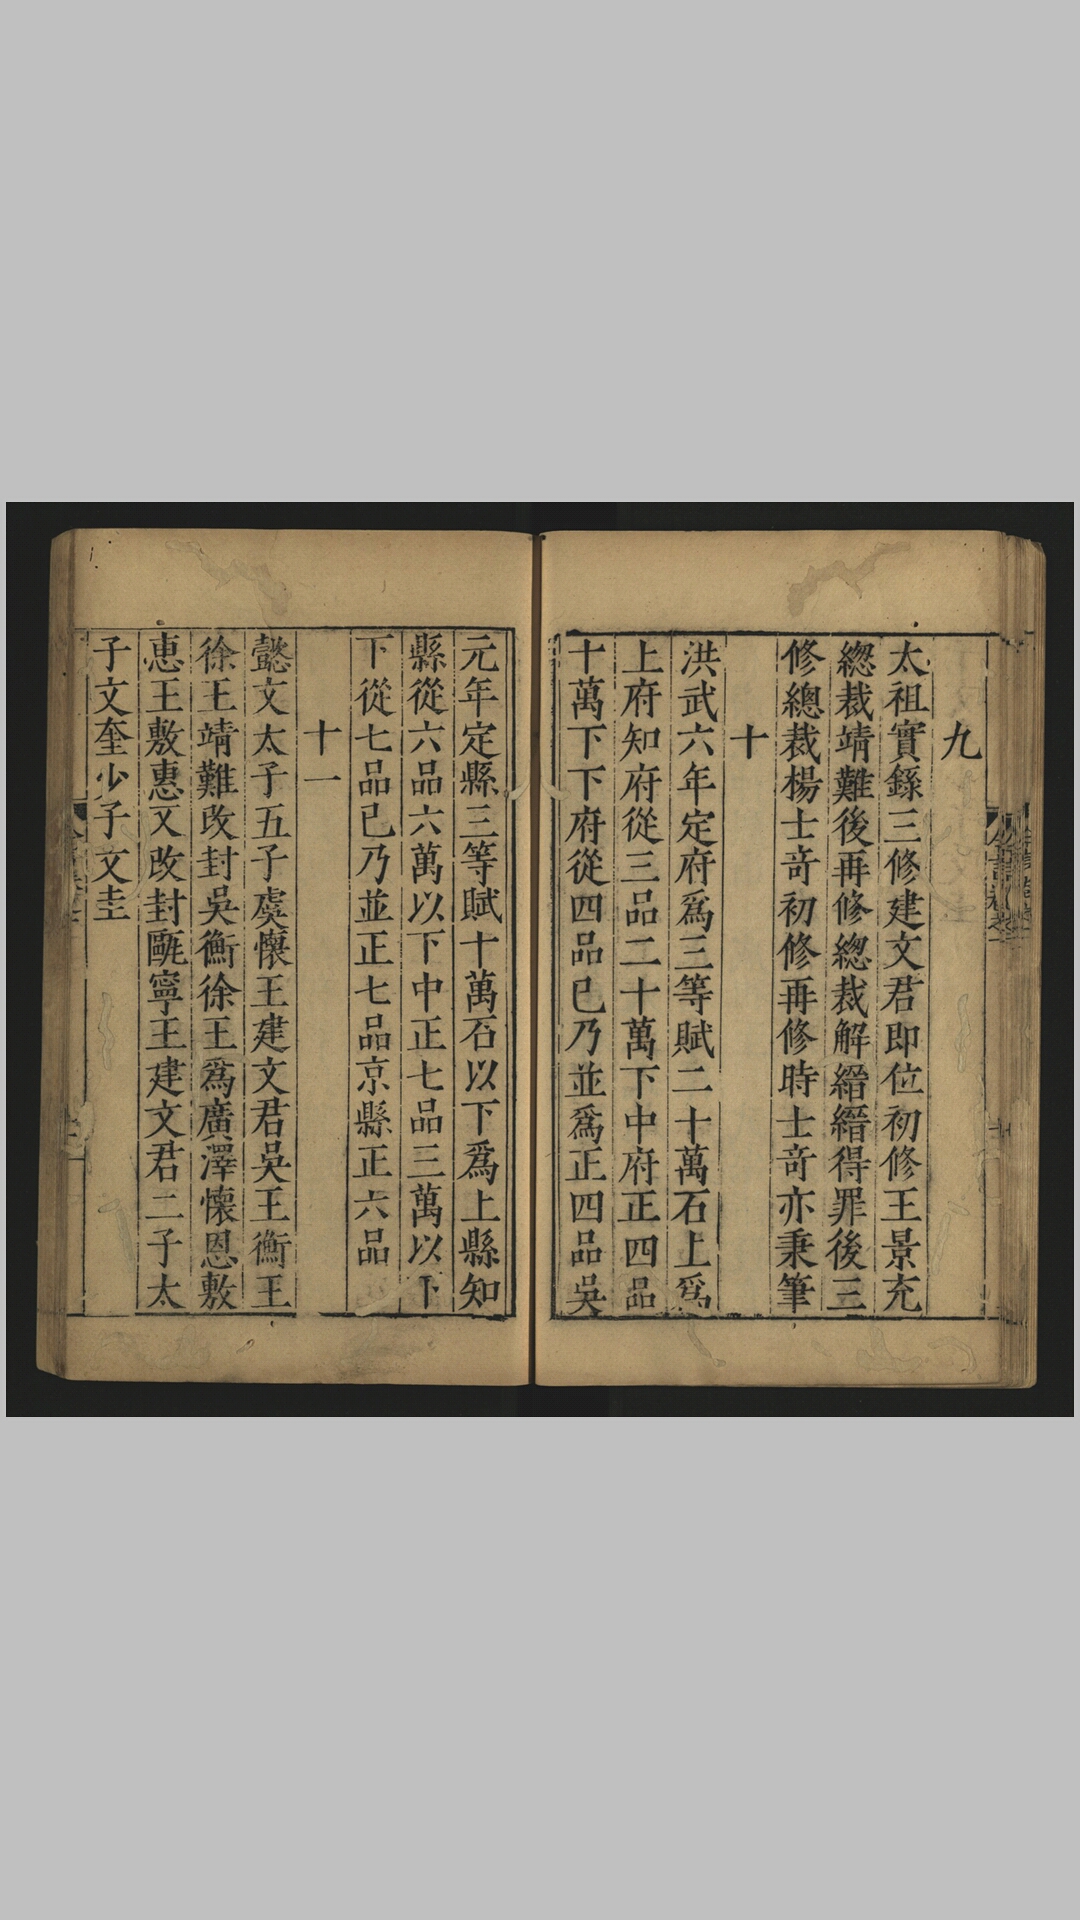 九
太祖實錄三修建文君即位初修王景充
總裁靖難後再修總裁解縉縉得罪後三
修總裁楊士奇初修再修時士奇亦秉筆
十
洪武六年定府爲三等賦二十萬石上爲
上府知府從三品二十萬下中府正四品
十萬下下府從四品已乃並爲正四品吳
元年定縣三等賦十萬石以下爲上縣知
縣從六品六萬以下中正七品三萬以下
下從七品已乃並正七品京縣正六品
十一
懿文太子五子虞懷王建文君吳王衡王
徐王靖難改封吳衡徐王爲廣澤懷恩敷
惠王敷惠又改封甌寧王建文君二子太
子文奎少子文圭